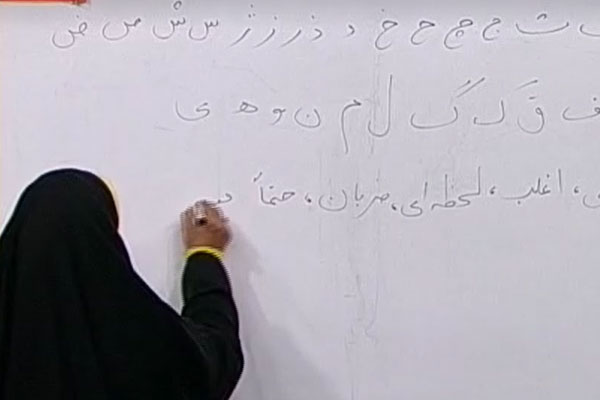 ث ج چ ح خ د ذ ر ز ژ س ش ص ض
ف ق ک گ ل م ن و ه ی
، اغلب، لحظه ای، ضربان، حتماً